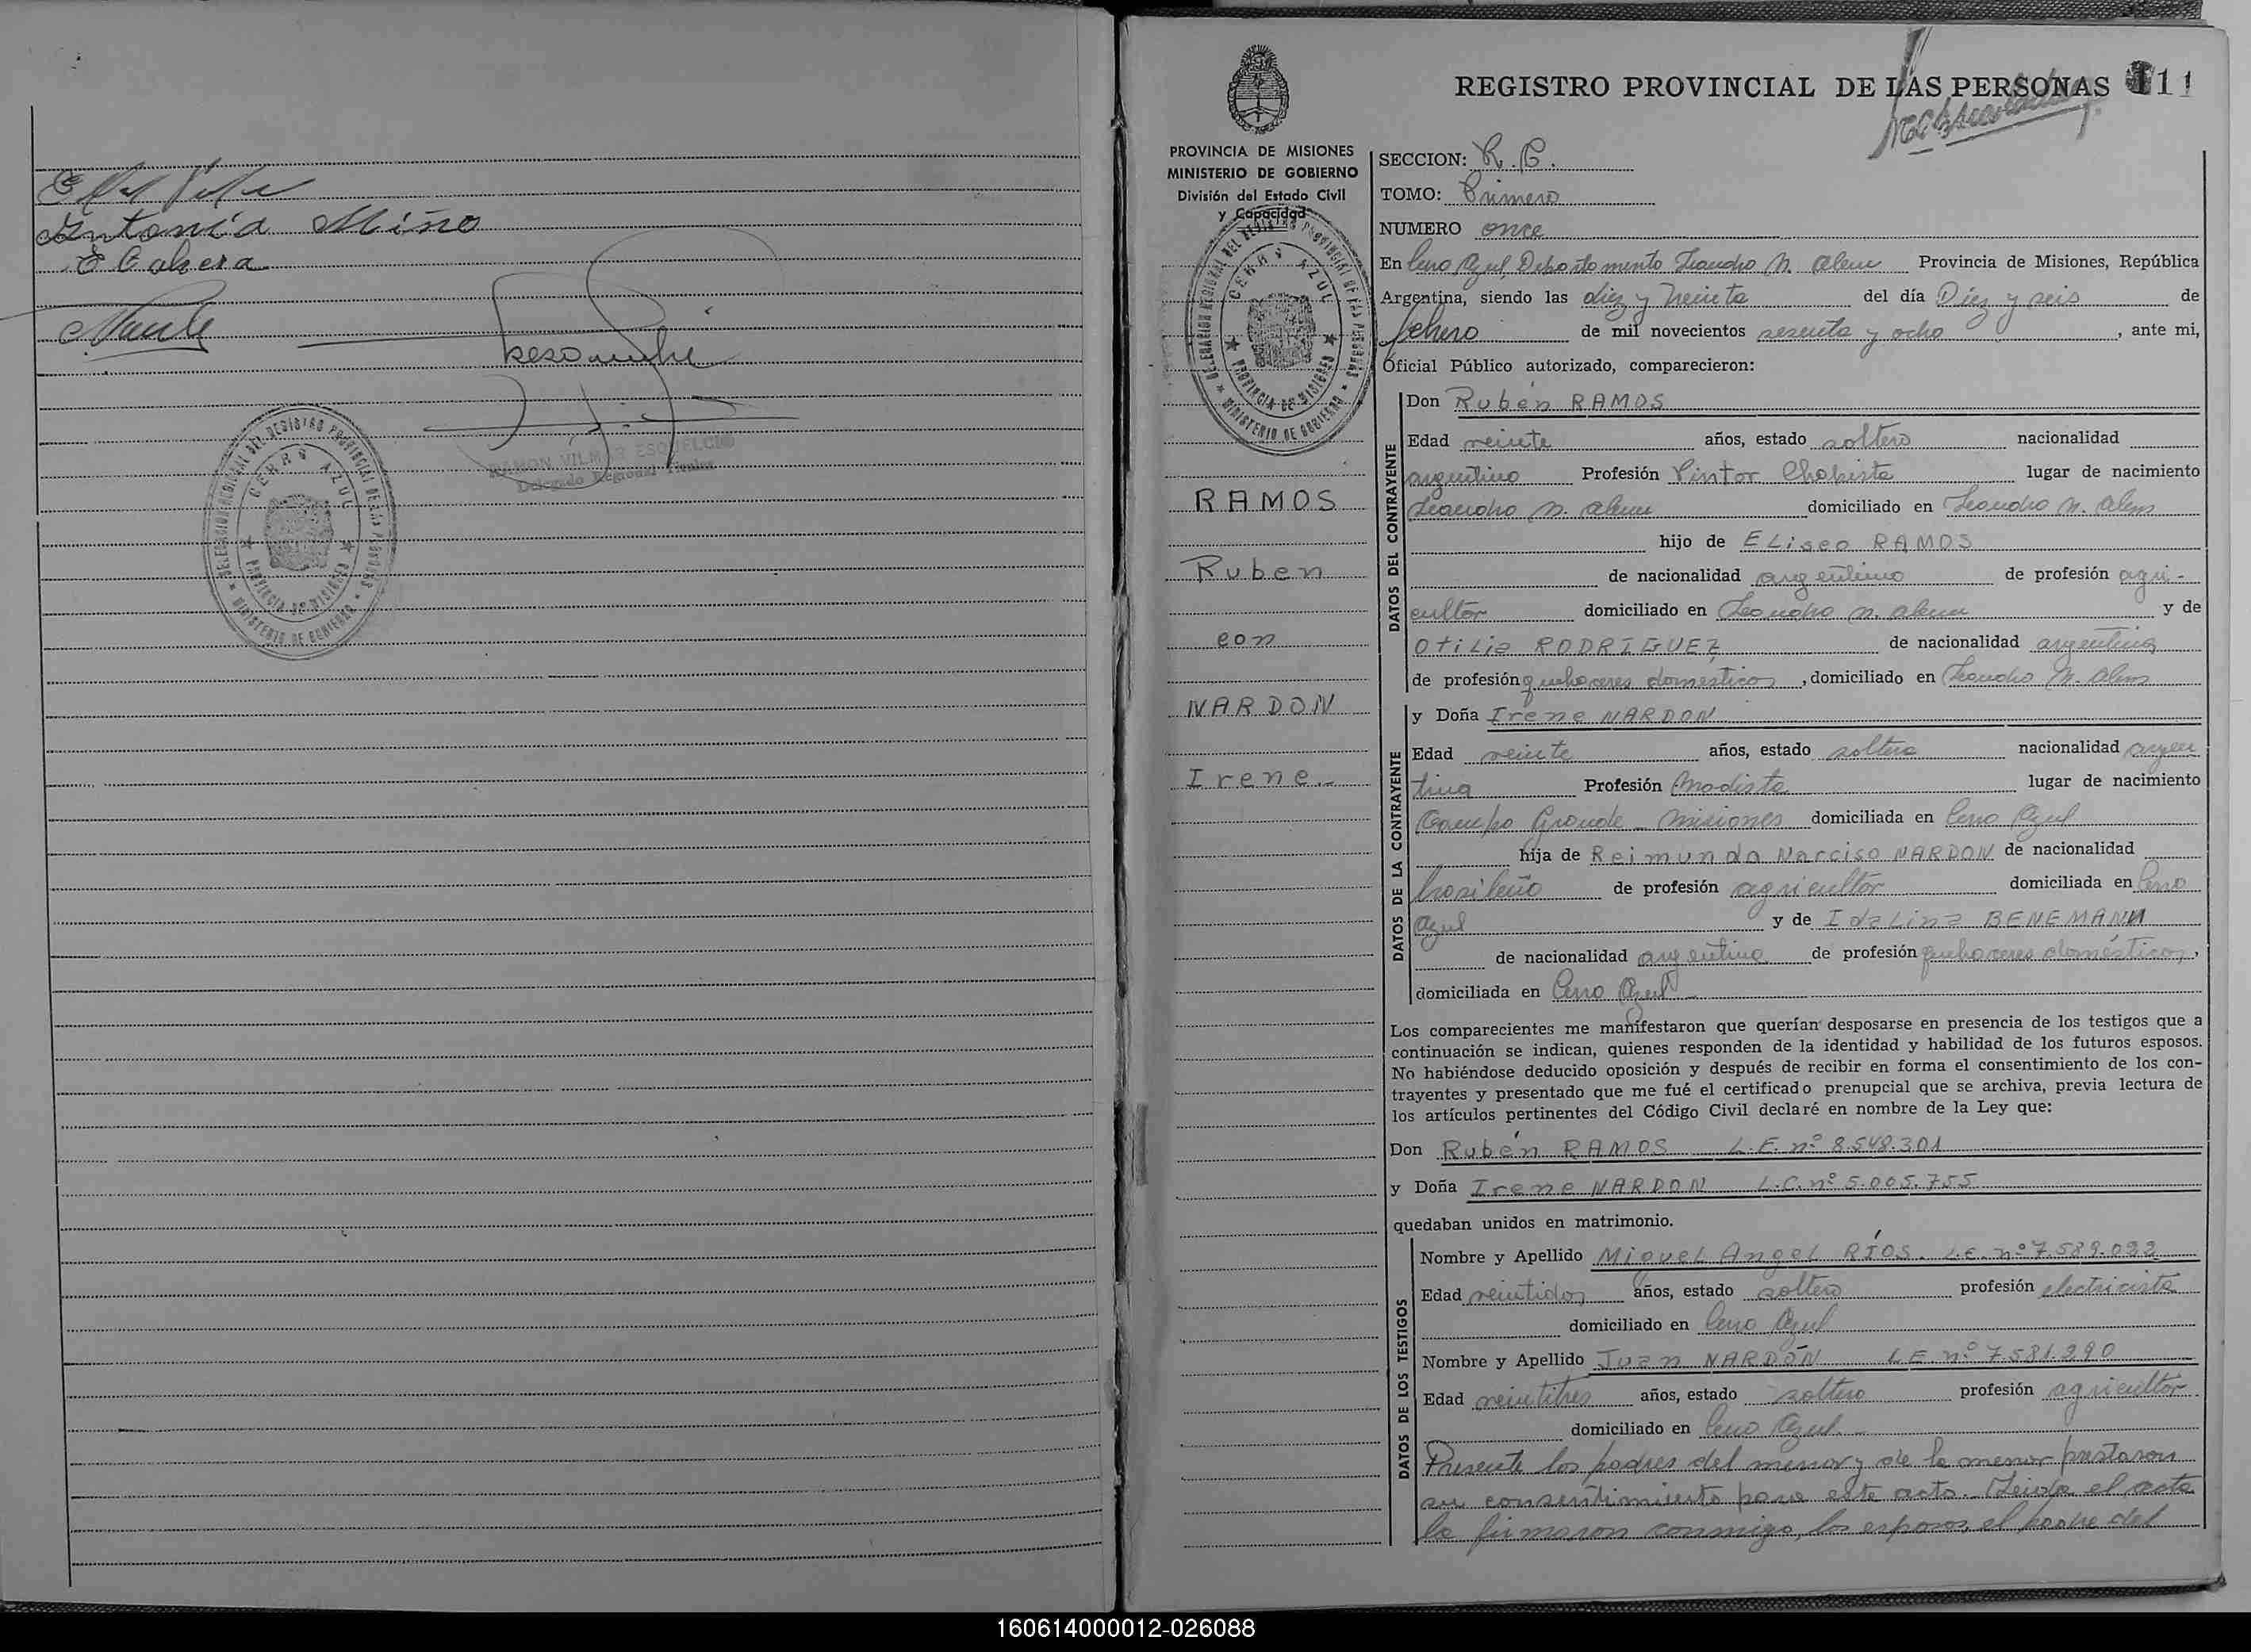 Antonia Miño
E Cabera
RAMON VILMAR ESQUELCIO
Delegado Regional Titular
DELEGACION REGIONAL DEL REGISTRO PROVINCIAL DE LAS PERSONAS
CERRO AZUL
PROVINCIA DE MISIONES
MINISTERIO DE GOBIERNO
REGISTRO PROVINCIAL DE LAS PERSONAS 11
PROVINCIA DE MISIONES
MINISTERIO DE GOBIERNO
División del Estado Civil
y Capacidad
DELEGACION REGIONAL DEL REGISTRO PROVINCIAL DE LAS PERSONAS
CERRO AZUL
PROVINCIA DE MISIONES
MINISTERIO DE GOBIERNO
RAMOS
Ruben
con
NARDON
Irene.-
SECCION: R.C.
TOMO: Primero
NUMERO once
En Cerro Azul, Departamento Leandro N. Alem Provincia de Misiones, República
Argentina, siendo las diez y treinta del día Diez y seis de
febrero de mil novecientos sesenta y ocho, ante mi,
Oficial Público autorizado, comparecieron:
DATOS DEL CONTRAYENTE
Don Rubén RAMOS
Edad veinte años, estado soltero nacionalidad
argentino Profesión Pintor Chapista lugar de nacimiento
Leandro N. Alem domiciliado en Leandro N. Alem
hijo de Eliseo RAMOS
de nacionalidad argentino de profesión agri-
cultor domiciliado en Leandro N. Alem y de
Otilia RODRIGUEZ de nacionalidad argentina
de profesión quehaceres domésticos, domiciliado en Leandro N. Alem
DATOS DE LA CONTRAYENTE
y Doña Irene NARDON
Edad veinte años, estado soltera nacionalidad argen
tina Profesión Modista lugar de nacimiento
Campo Grande - Misiones domiciliada en Cerro Azul
hija de Reimundo Narciso NARDON de nacionalidad
brasileño de profesión agricultor domiciliada en Cerro
Azul y de Idalina BENEMANN
de nacionalidad argentina de profesión quehaceres domésticos,
domiciliada en Cerro Azul -
Los comparecientes me manifestaron que querían desposarse en presencia de los testigos que a
continuación se indican, quienes responden de la identidad y habilidad de los futuros esposos.
No habiéndose deducido oposición y después de recibir en forma el consentimiento de los con-
trayentes y presentado que me fué el certificado prenupcial que se archiva, previa lectura de
los artículos pertinentes del Código Civil declaré en nombre de la Ley que:
Don Rubén RAMOS L.E. nº 8.548.301
y Doña Irene NARDON L.C. nº 5.005.755
quedaban unidos en matrimonio.
DATOS DE LOS TESTIGOS
Nombre y Apellido Miguel Angel RÍOS. L.E. nº 7.589.022
Edad veintidos años, estado soltero profesión electricista
domiciliado en Cerro Azul
Nombre y Apellido Juan NARDÓN L.E. nº 7.581.290
Edad veintitres años, estado soltero profesión agricultor
domiciliado en Cerro Azul.-
Presente los padres del menor y de la menor prestaron
su consentimiento para este acto. Leida el acta
la firmaron conmigo, los esposos, el padre del
160614000012-026088